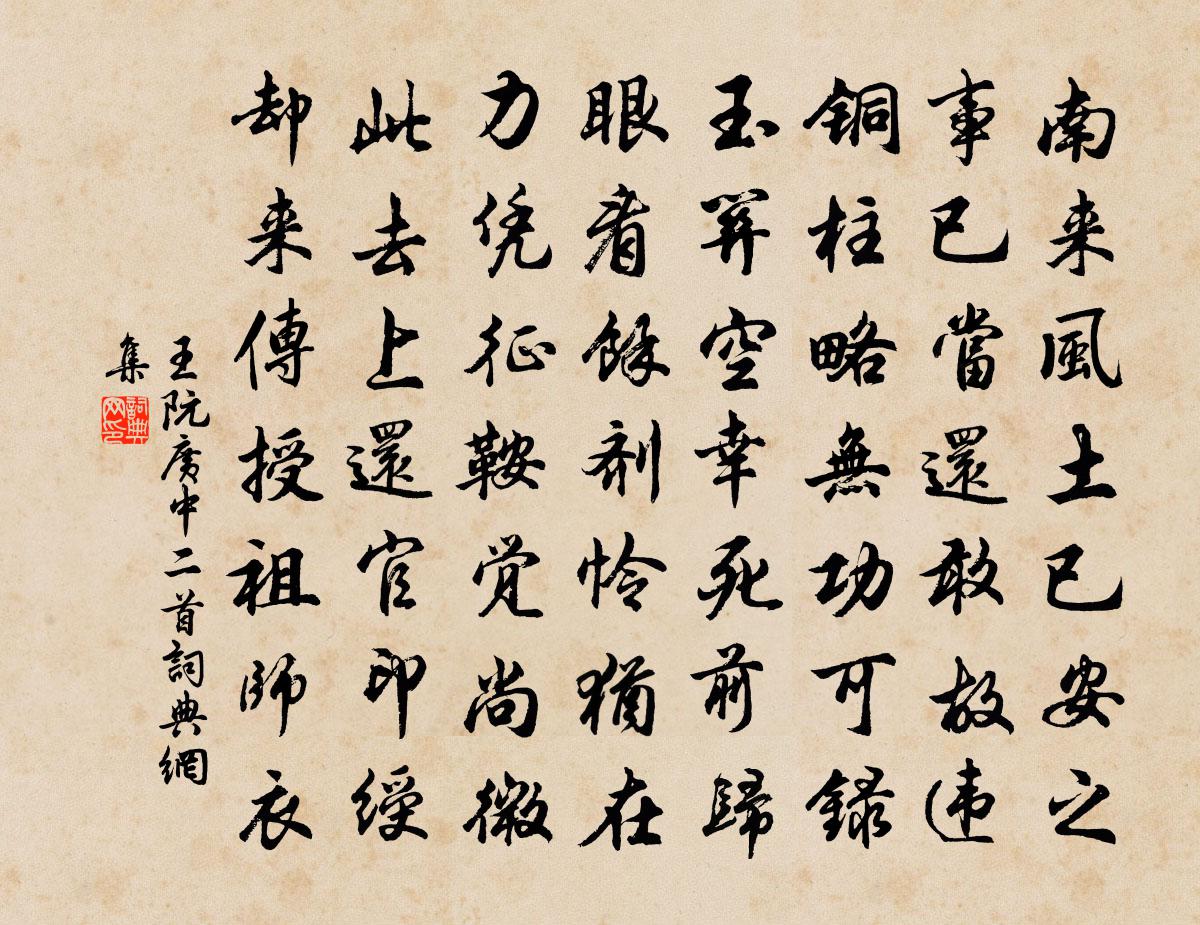 南来風土已安之
事已當還敢故违
銅柱略無功可録
玉關空幸死前歸
眼看餘剂怜猶在
力凭征鞍覚尚微
此去上還官印綬
却来傳授祖師衣
王阮廣中二首詞典網
集
詞典網印